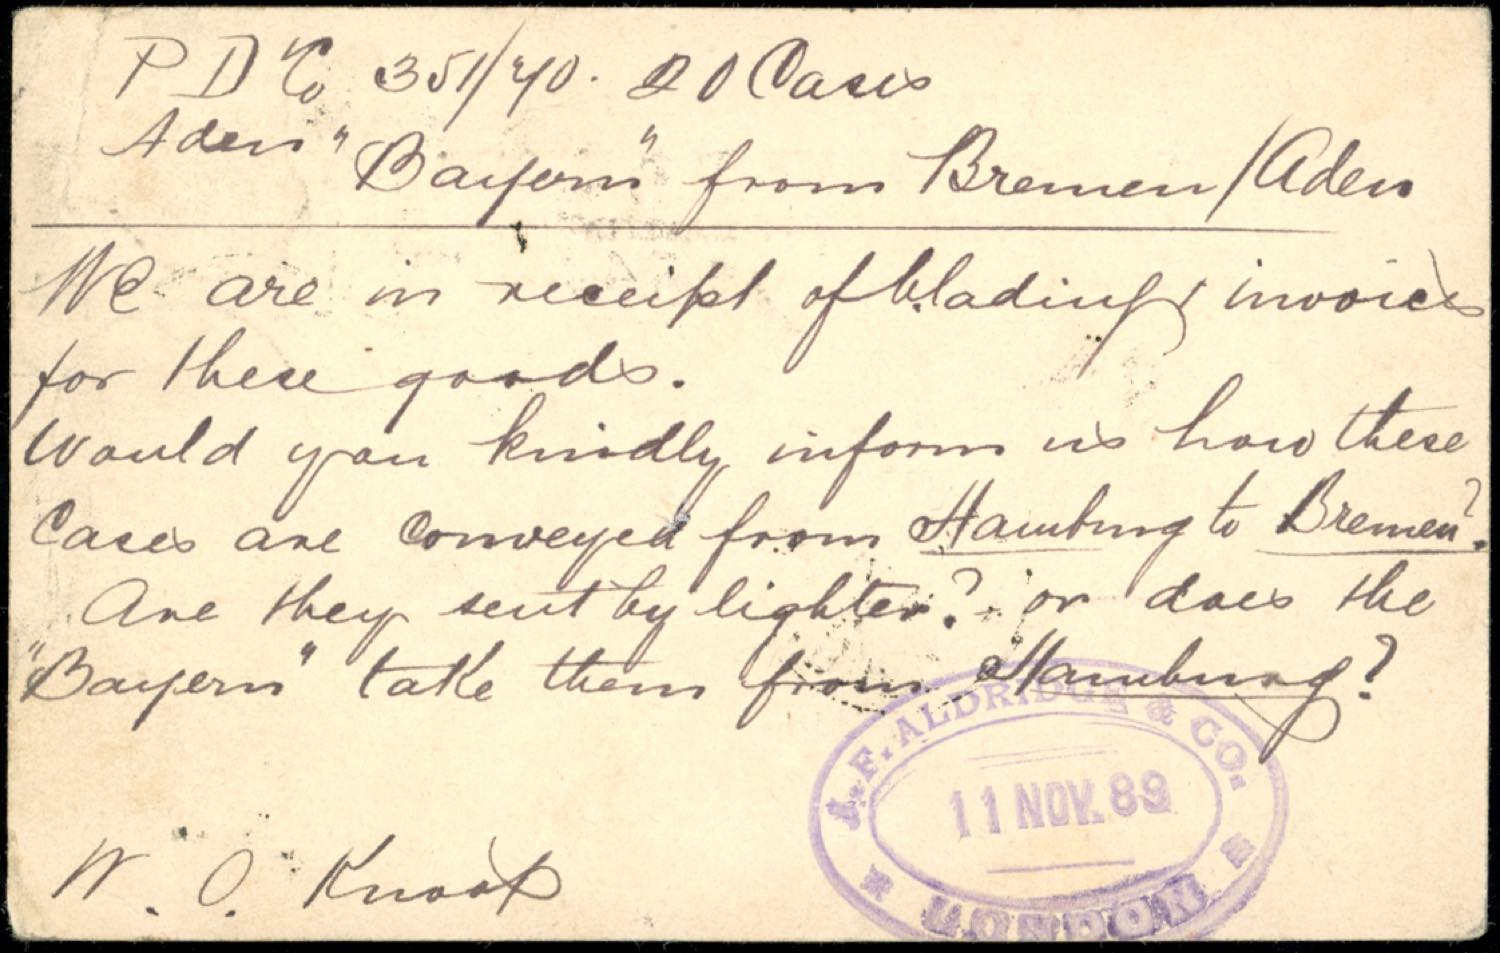 P D & Co 351/70. 20 Cases
Aden "Bayern" from Bremen/Aden
We are in receipt of b.lading & invoices
for these goods.
Would you kindly inform us how these
Cases are conveyed from Hamburg to Bremen?
Are they sent by lighter? or does the
"Bayern" take them from Hamburg?
W. O. Knoop
F. ALDRIDGE & CO.
11 NOV. 89
LONDON